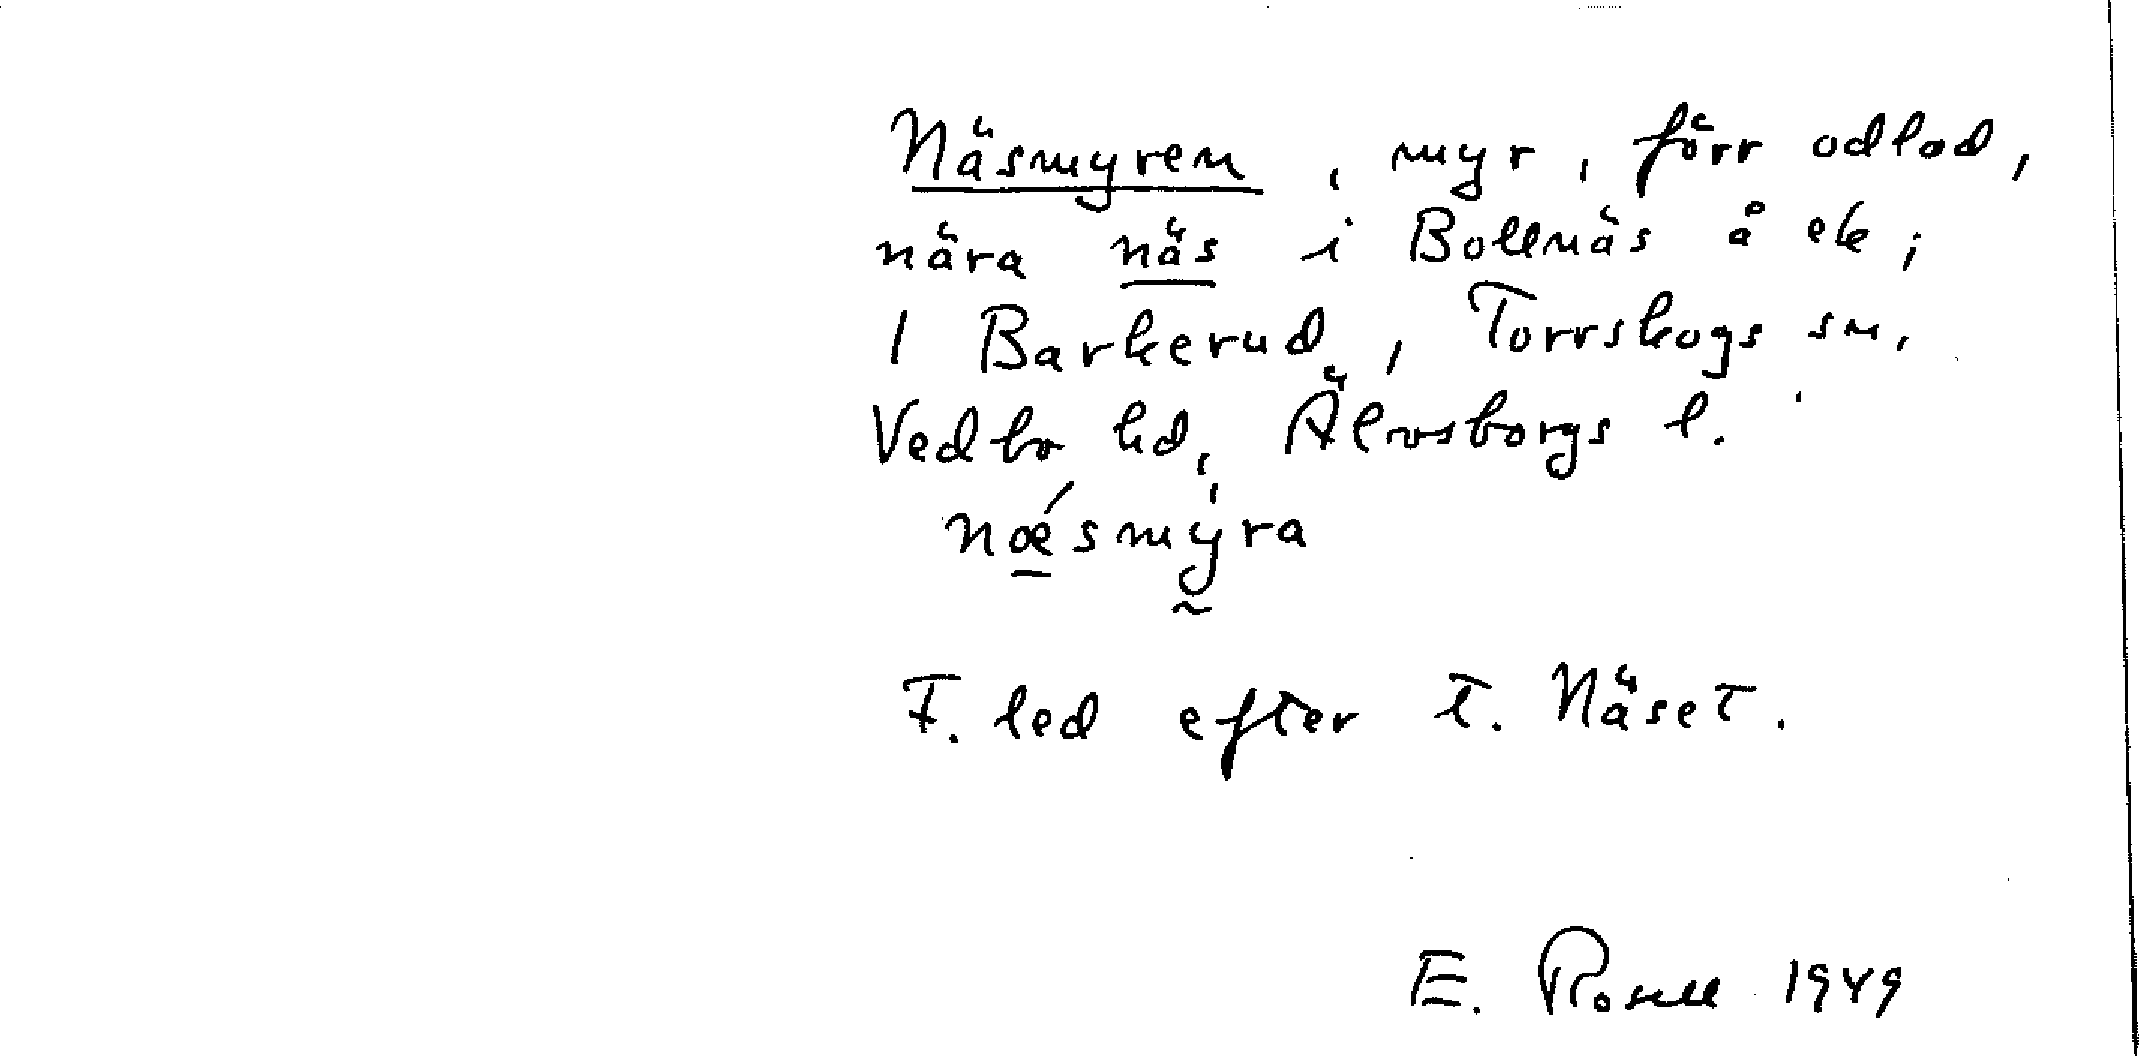 Näsmyren, myr, förr odlad,
nära näs i Bollnäs å ek;
1 Barkerud, Torrskogs sn,
Vedbo hd, Älvsborgs l.
næ´smy̍ra
F. led efter t. Näset.
E. Rosell 1949